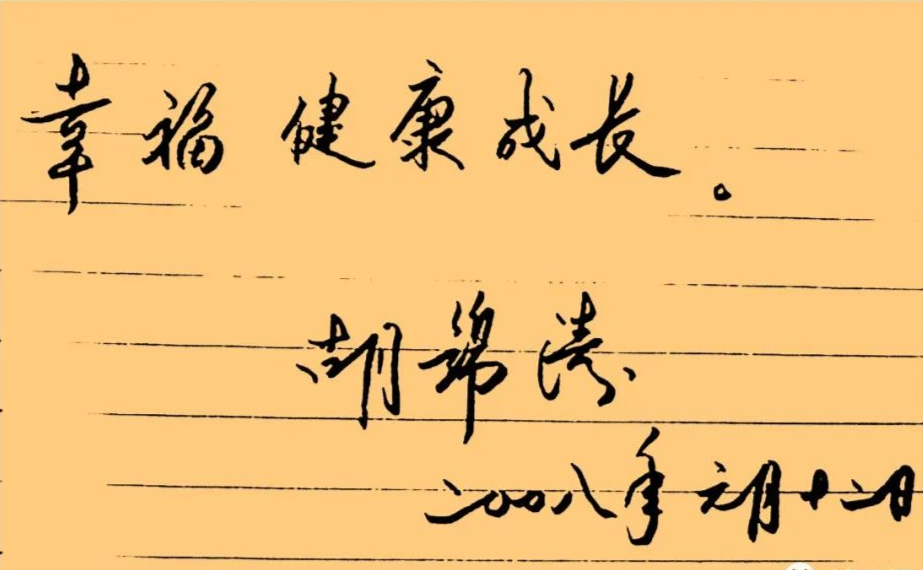 幸福 健康成长。
胡锦涛
二〇〇八年元月十二日